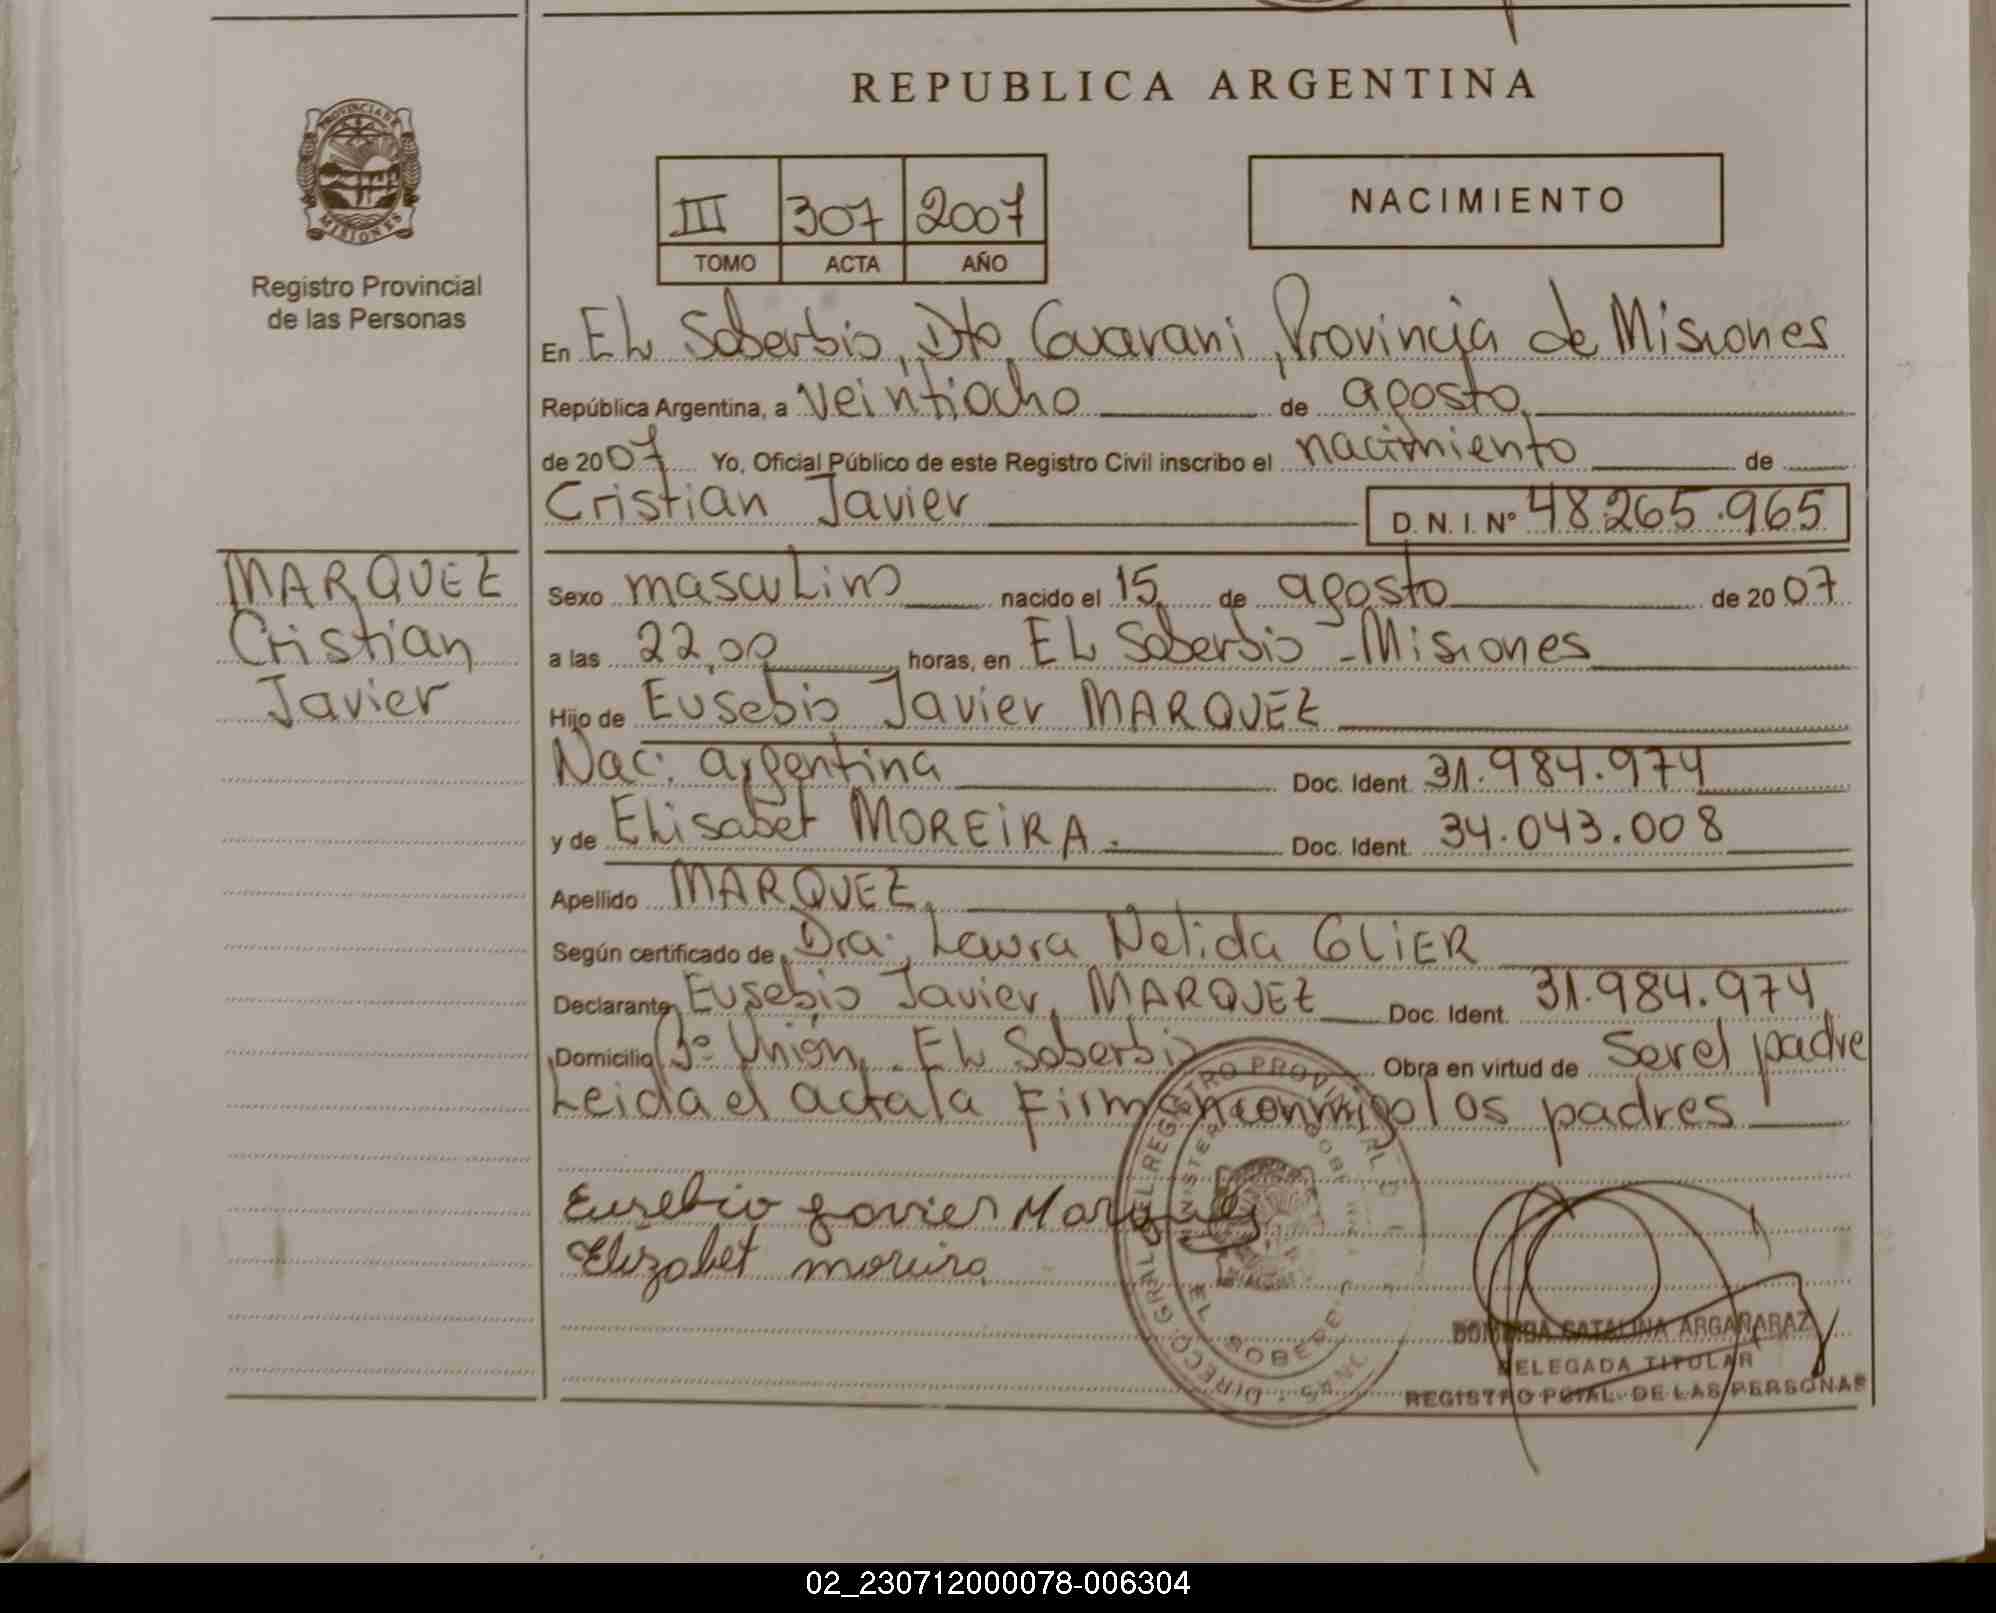 REPUBLICA ARGENTINA
PROVINCIA DE
MISIONES
Registro Provincial
de las Personas
III 307 2007
TOMO ACTA AÑO
NACIMIENTO
En EL Soberbio, Dto. Guarani, Provincia de Misiones
República Argentina, a veintiocho de agosto
de 2007 Yo, Oficial Público de este Registro Civil inscribo el nacimiento de
Cristian Javier D. N. I. Nº 48.265.965
MARQUEZ
Cristian
Javier
Sexo masculino nacido el 15 de agosto de 2007
a las 22,00 horas, en EL Soberbio - Misiones
Hijo de Eusebio Javier MARQUEZ
Nac: argentina Doc. Ident. 31.984.974
y de Elisabet MOREIRA. Doc. Ident. 34.043.008
Apellido MARQUEZ
Según certificado de Dra. Laura Nelida GLIER
Declarante Eusebio Javier MARQUEZ Doc. Ident. 31.984.974
Domicilio Bº Unión - EL Soberbio Obra en virtud de Ser el padre
Leida el acta la Firman conmigo los padres
Eusebio Javier Marquez
Elizabet moreira
DIRECC. GRAL DEL REGISTRO PROVINCIAL
CATALINA ARGAÑARAZ
DELEGADA TITULAR
REGISTRO PCIAL. DE LAS PERSONAS
02_230712000078-006304